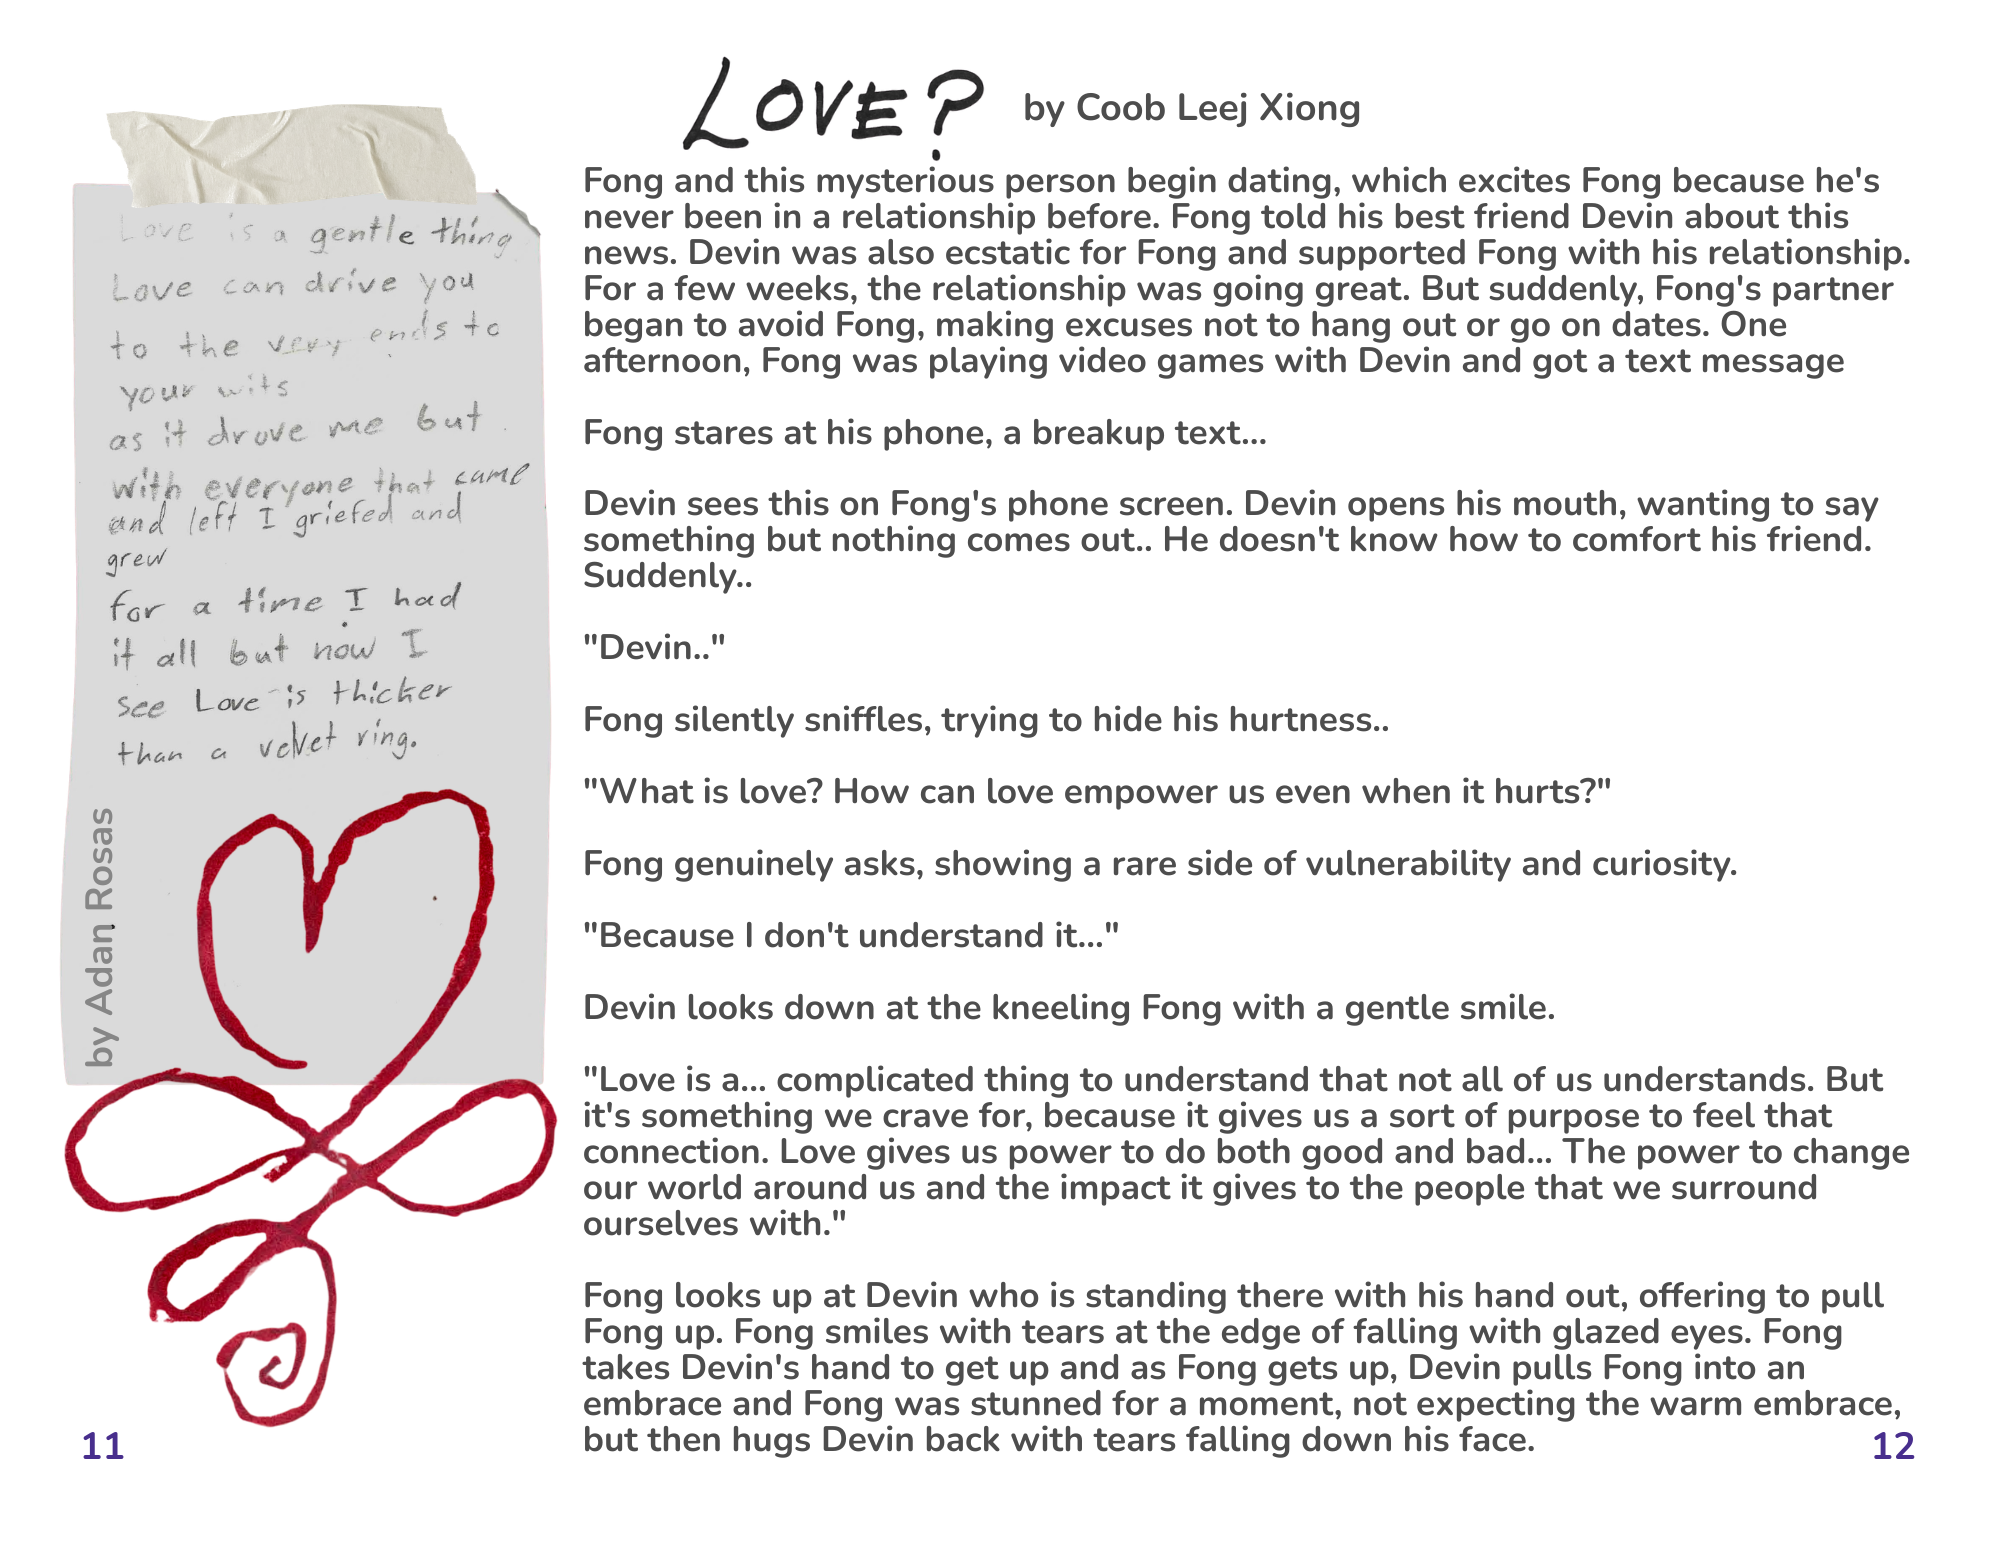 Love is a gentle thing
Love can drive you
to the very ends to
your wits
as it drove me but
with everyone that came
and left I griefed and
grew
for a time I had
it all but now I
see Love is thicker
than a velvet ring.
by Adan Rosas
11
LOVE?
by Coob Leej Xiong
Fong and this mysterious person begin dating, which excites Fong because he's
never been in a relationship before. Fong told his best friend Devin about this
news. Devin was also ecstatic for Fong and supported Fong with his relationship.
For a few weeks, the relationship was going great. But suddenly, Fong's partner
began to avoid Fong, making excuses not to hang out or go on dates. One
afternoon, Fong was playing video games with Devin and got a text message
Fong stares at his phone, a breakup text...
Devin sees this on Fong's phone screen. Devin opens his mouth, wanting to say
something but nothing comes out.. He doesn't know how to comfort his friend.
Suddenly..
"Devin.."
Fong silently sniffles, trying to hide his hurtness..
"What is love? How can love empower us even when it hurts?"
Fong genuinely asks, showing a rare side of vulnerability and curiosity.
"Because I don't understand it..."
Devin looks down at the kneeling Fong with a gentle smile.
"Love is a... complicated thing to understand that not all of us understands. But
it's something we crave for, because it gives us a sort of purpose to feel that
connection. Love gives us power to do both good and bad... The power to change
our world around us and the impact it gives to the people that we surround
ourselves with."
Fong looks up at Devin who is standing there with his hand out, offering to pull
Fong up. Fong smiles with tears at the edge of falling with glazed eyes. Fong
takes Devin's hand to get up and as Fong gets up, Devin pulls Fong into an
embrace and Fong was stunned for a moment, not expecting the warm embrace,
but then hugs Devin back with tears falling down his face.
12